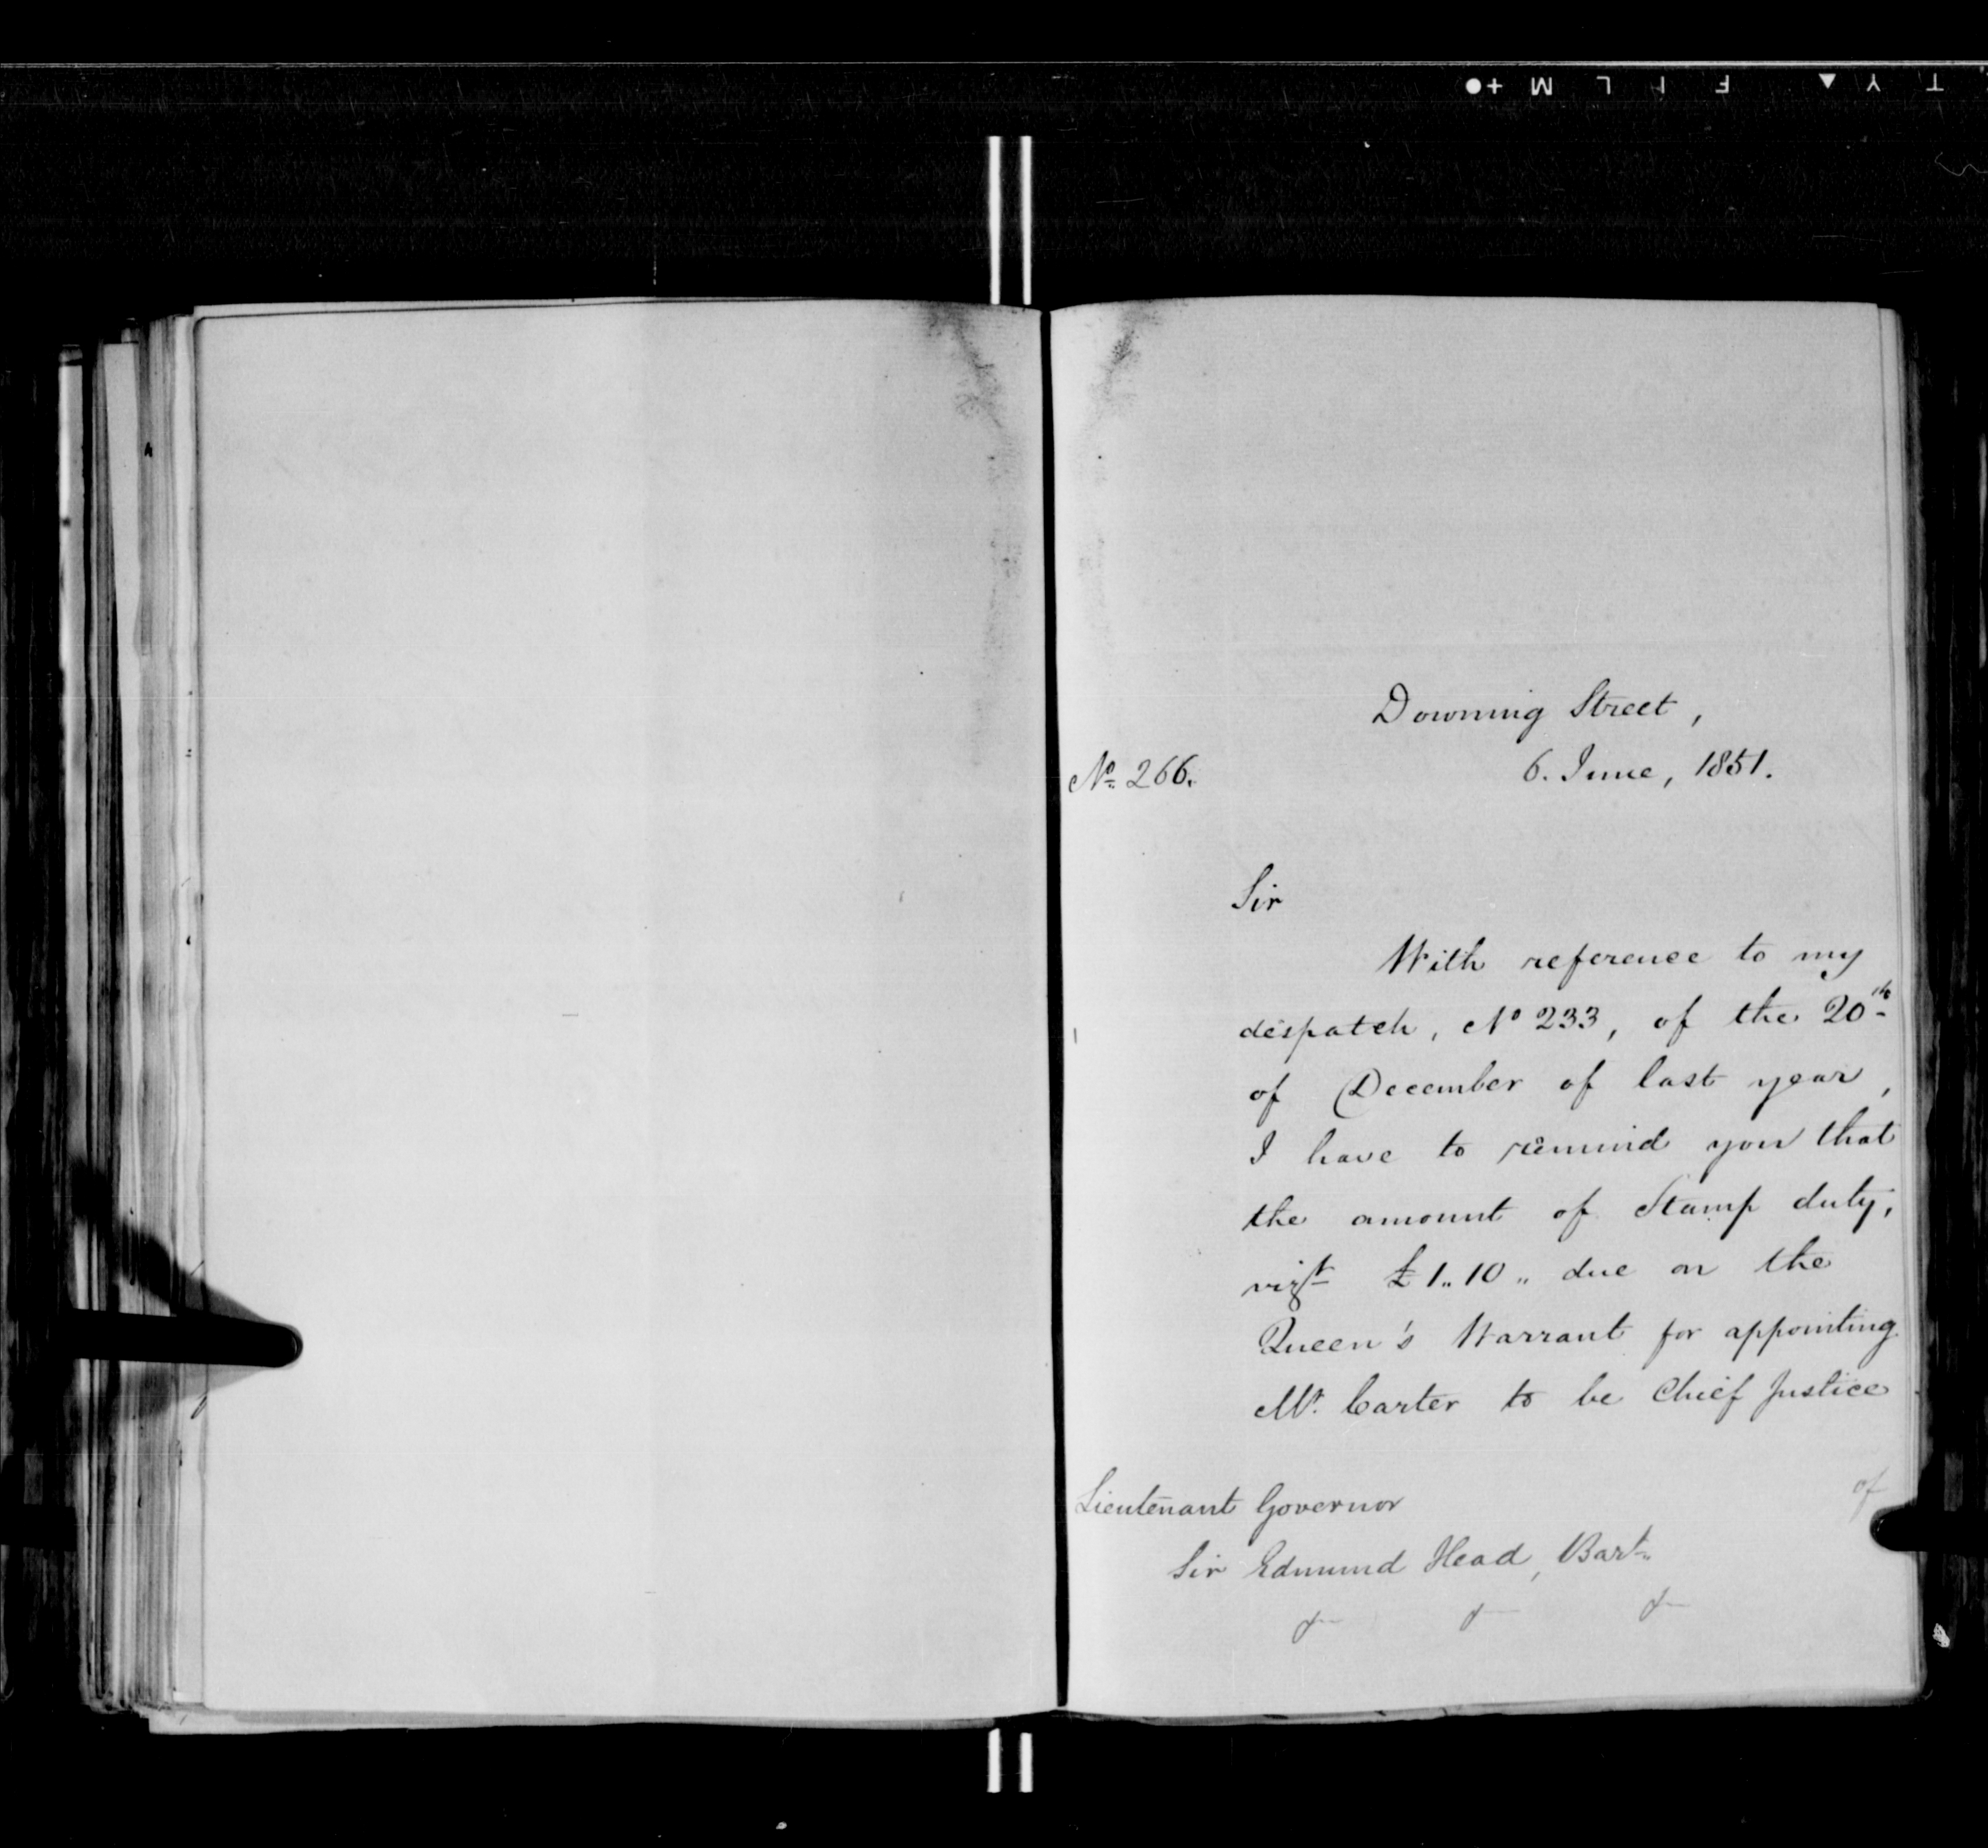 T Y ▲ F I L M +●
Downing Street,
No. 266.
6. June, 1851.
Sir
With reference to my
despatch, No 233, of the 20th
of December of last year,
I have to remind you that
the amount of Stamp duty,
vizt £1..10.. due on the
Queen's Warrant for appointing
Mr. Carter to be Chief Justice
of
Lieutenant Governor
Sir Edmund Head, Bart.